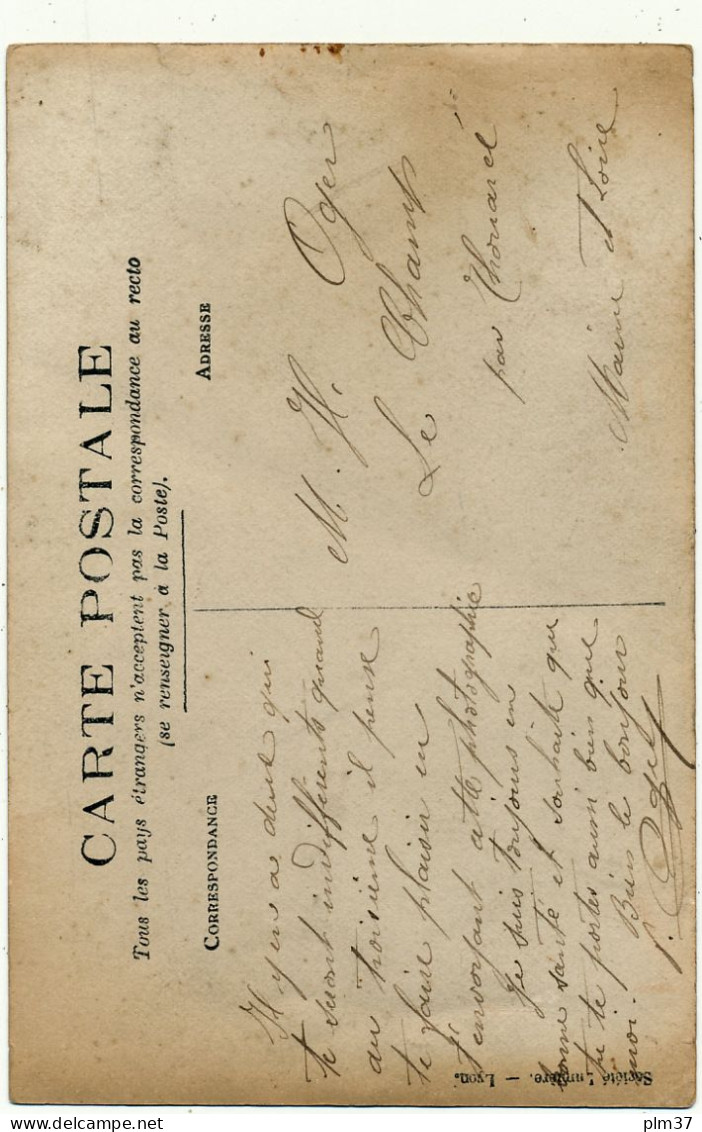 CARTE POSTALE
Tous les pays étrangers n'acceptent pas la correspondance au recto
(se renseigner à la Poste).
CORRESPONDANCE
Il y en a deux qui
te seront indifférents quand
au troisième il pense
te faire plaisir en
t'envoyant cette photographie
Je suis toujours en
bonne santé et souhaite que
tu te portes aussi bien que
moi. Bien le bonjour
Société Lumière. — Lyon.
ADRESSE
M. H. Oger
Le Champ
par Thouarcé
Maine et Loire
plm37